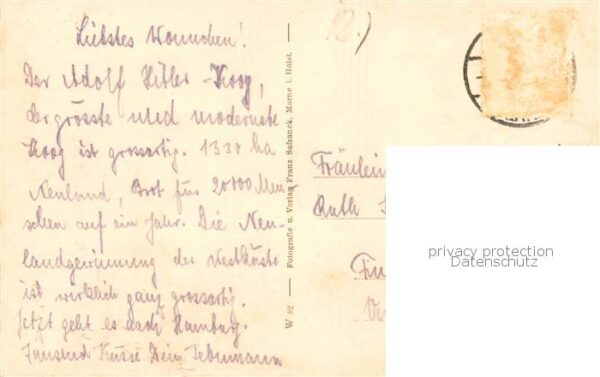 Liebstes Wonnchen!
Der Adolf Hitler-Koog,
der grösste und modernste
Koog ist grossartig. 1338 ha
Neuland, Brot für 20000 Men-
schen auf ein Jahr. Die Neu-
landgewinnung der Westküste
ist wirklich ganz grossartig.
Jetzt geht es nach Hamburg.
Tausend Küsse Dein
W 82 — Fotografie u. Verlag Franz Safranek, Marne i. Holst.
Fräulein
Ruth
privacy protection
Datenschutz